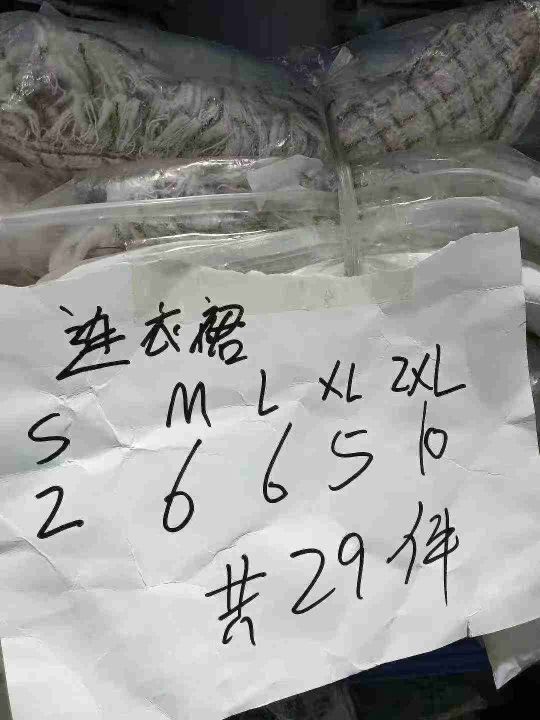 连衣裙
S M L XL 2XL
2 6 6 5 10
共29件